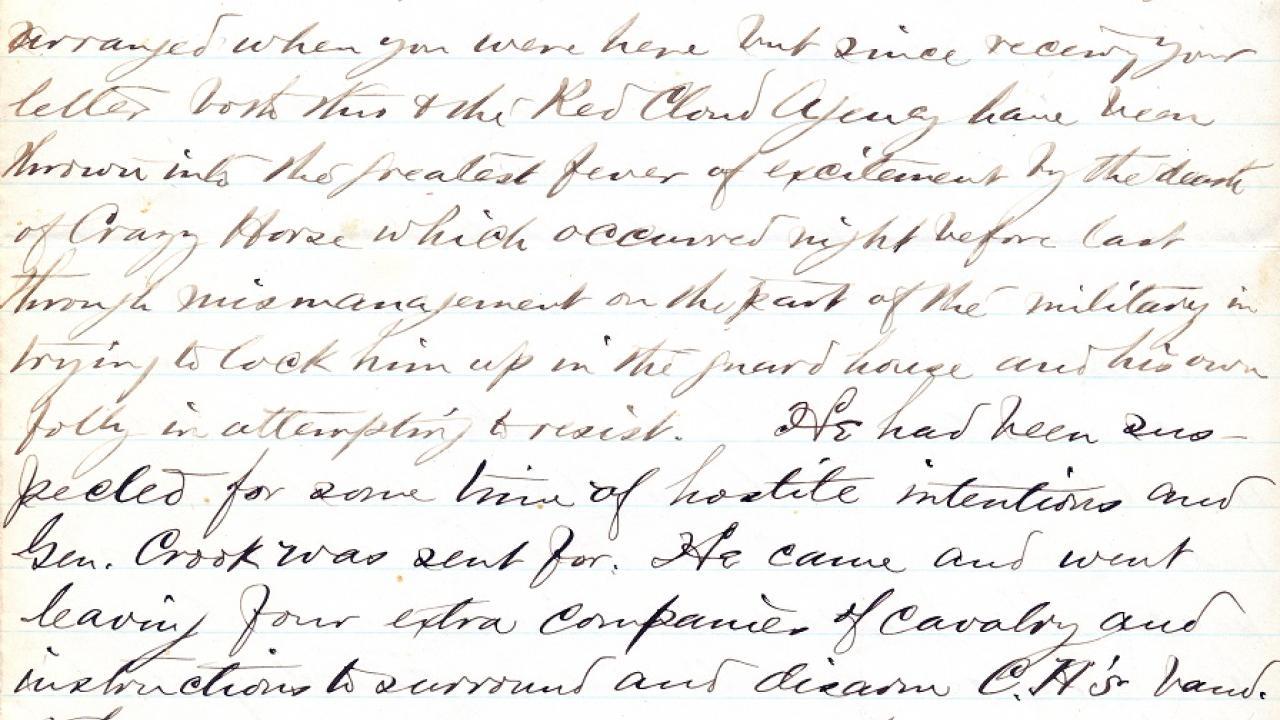 arranged when you were here but since receiving your
letter both this & the Red Cloud Agency have been
thrown into the greatest fever of excitement by the death
of Crazy Horse which occurred night before last
through mismanagement on the part of the military in
trying to lock him up in the guard house and his own
folly in attempting to resist. He had been sus-
pected for some time of hostile intentions and
Gen. Crook was sent for. He came and went
leaving four extra companies of cavalry and
instructions to surround and disarm C.H's band.